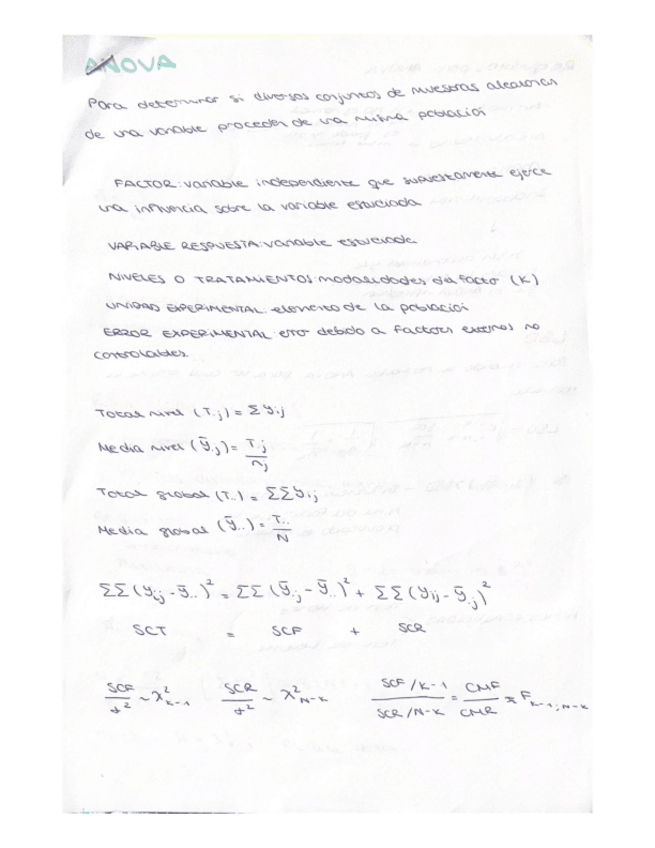 ANOVA
Para determinar si diversos conjuntos de muestras aleatorias
de una variable proceden de una misma población
FACTOR: variable independiente que supuestamente ejerce
una influencia sobre la variable estudiada
VARIABLE RESPUESTA: variable estudiada
NIVELES O TRATAMIENTOS: modalidades del factor (K)
UNIDAD EXPERIMENTAL: elemento de la población
ERROR EXPERIMENTAL: error debido a factores externos no
controlables.
Total nivel (T.j) = Σ yij
Media nivel (ȳ.j) = T.j / nj
Total global (T..) = ΣΣ yij
Media global (ȳ..) = T.. / N
ΣΣ (yij - ȳ..)² = ΣΣ (ȳ.j - ȳ..)² + ΣΣ (yij - ȳ.j)²
SCT = SCF + SCR
SCF / σ² ~ χ²k-1 SCR / σ² ~ χ²N-k (SCF/k-1) / (SCR/N-k) = CMF / CMR ≈ Fk-1; N-k